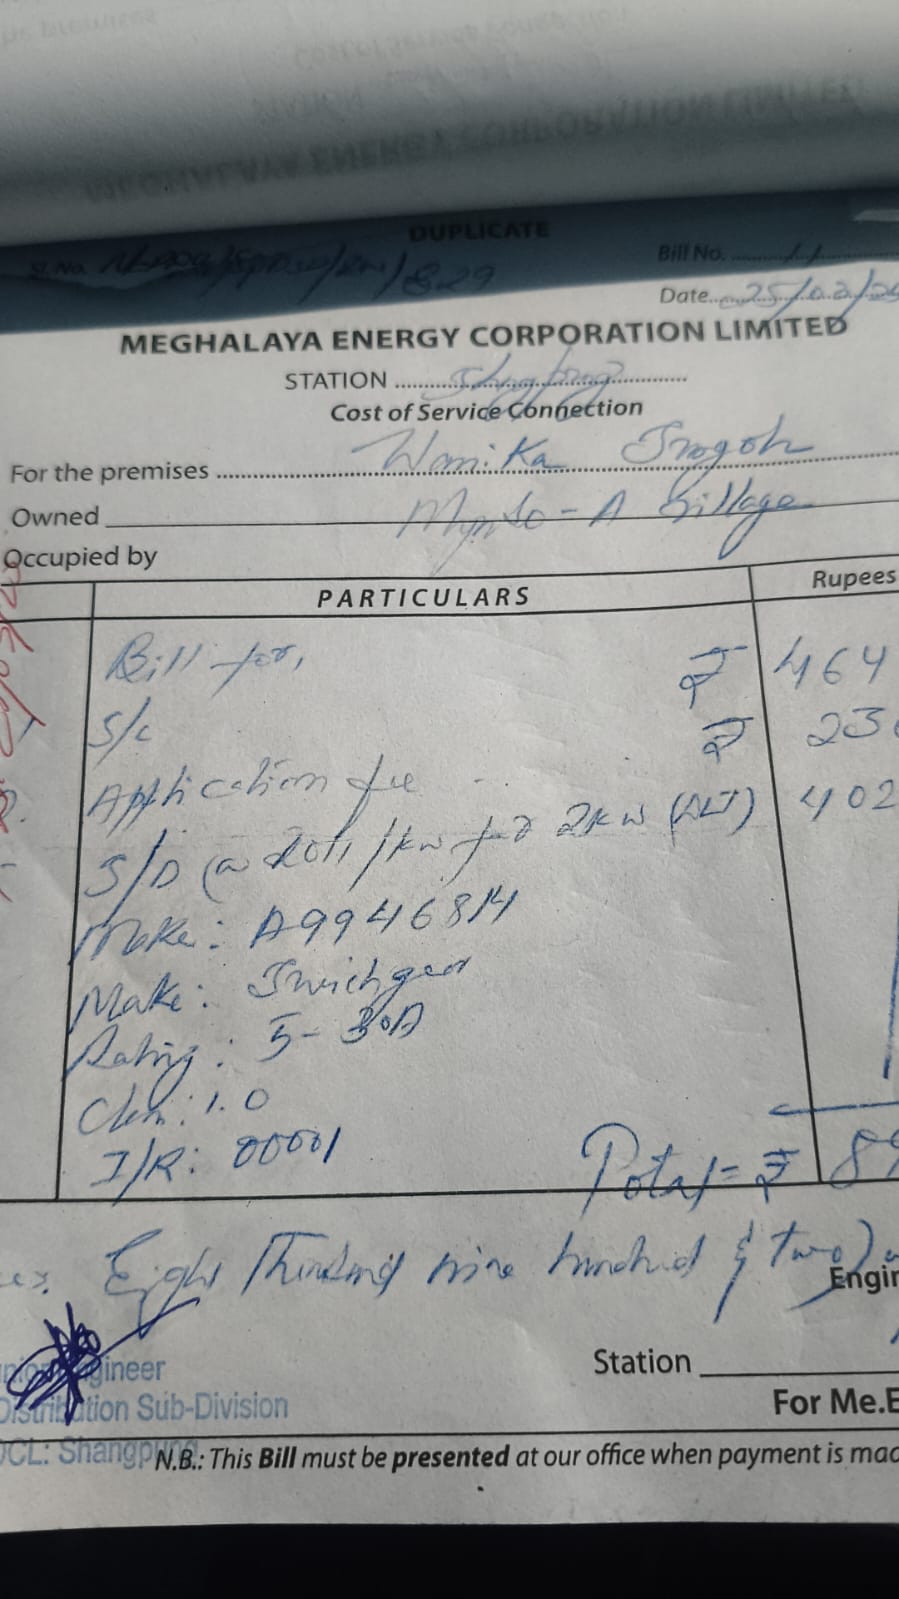 DUPLICATE
Sl. No. /829
Bill No.
Date 25/02/
MEGHALAYA ENERGY CORPORATION LIMITED
STATION
Cost of Service Connection
For the premises Wanika
Owned Mynso - A Village
Occupied by
PARTICULARS Rupees
Bill for, ₹ 464
S/c ₹ 230
Application fee 402
S/D @ 2011/kw for 2kw (DLT)
Make: A9946814
Make: Swichgear
Rating: 5-30A
1.0
I/R: 00001
Total = ₹ 89
Eight Thousand nine hundred & two)
Engin
Station
gineer
Distribution Sub-Division
For Me.E
DCL: Shangpung
N.B.: This Bill must be presented at our office when payment is mad